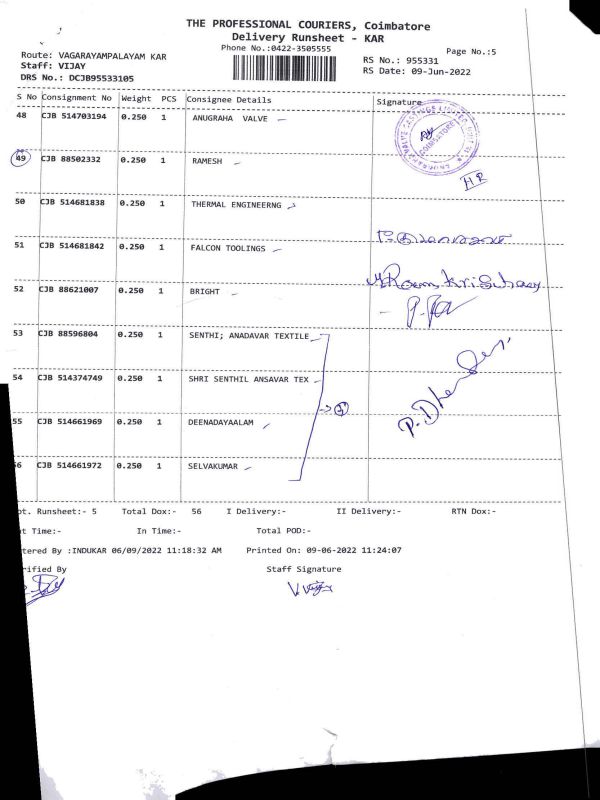 THE PROFESSIONAL COURIERS, Coimbatore
Delivery Runsheet - KAR
Phone No.:0422-3505555
Page No.:5
Route: VAGARAYAMPALAYAM KAR
RS No.: 955331
Staff: VIJAY
RS Date: 09-Jun-2022
DRS No.: DCJB95533105
S No Consignment No Weight PCS Consignee Details Signature
48 CJB 514703194 0.250 1 ANUGRAHA VALVE
49 CJB 88502332 0.250 1 RAMESH
HR
50 CJB 514681838 0.250 1 THERMAL ENGINEERNG
51 CJB 514681842 0.250 1 FALCON TOOLINGS
52 CJB 88621007 0.250 1 BRIGHT
53 CJB 88596804 0.250 1 SENTHI; ANADAVAR TEXTILE
54 CJB 514374749 0.250 1 SHRI SENTHIL ANSAVAR TEX
55 CJB 514661969 0.250 1 DEENADAYAALAM
56 CJB 514661972 0.250 1 SELVAKUMAR
ot. Runsheet:- 5 Total Dox:- 56 I Delivery:- II Delivery:- RTN Dox:-
t Time:- In Time:- Total POD:-
tered By :INDUKAR 06/09/2022 11:18:32 AM Printed On: 09-06-2022 11:24:07
rified By Staff Signature